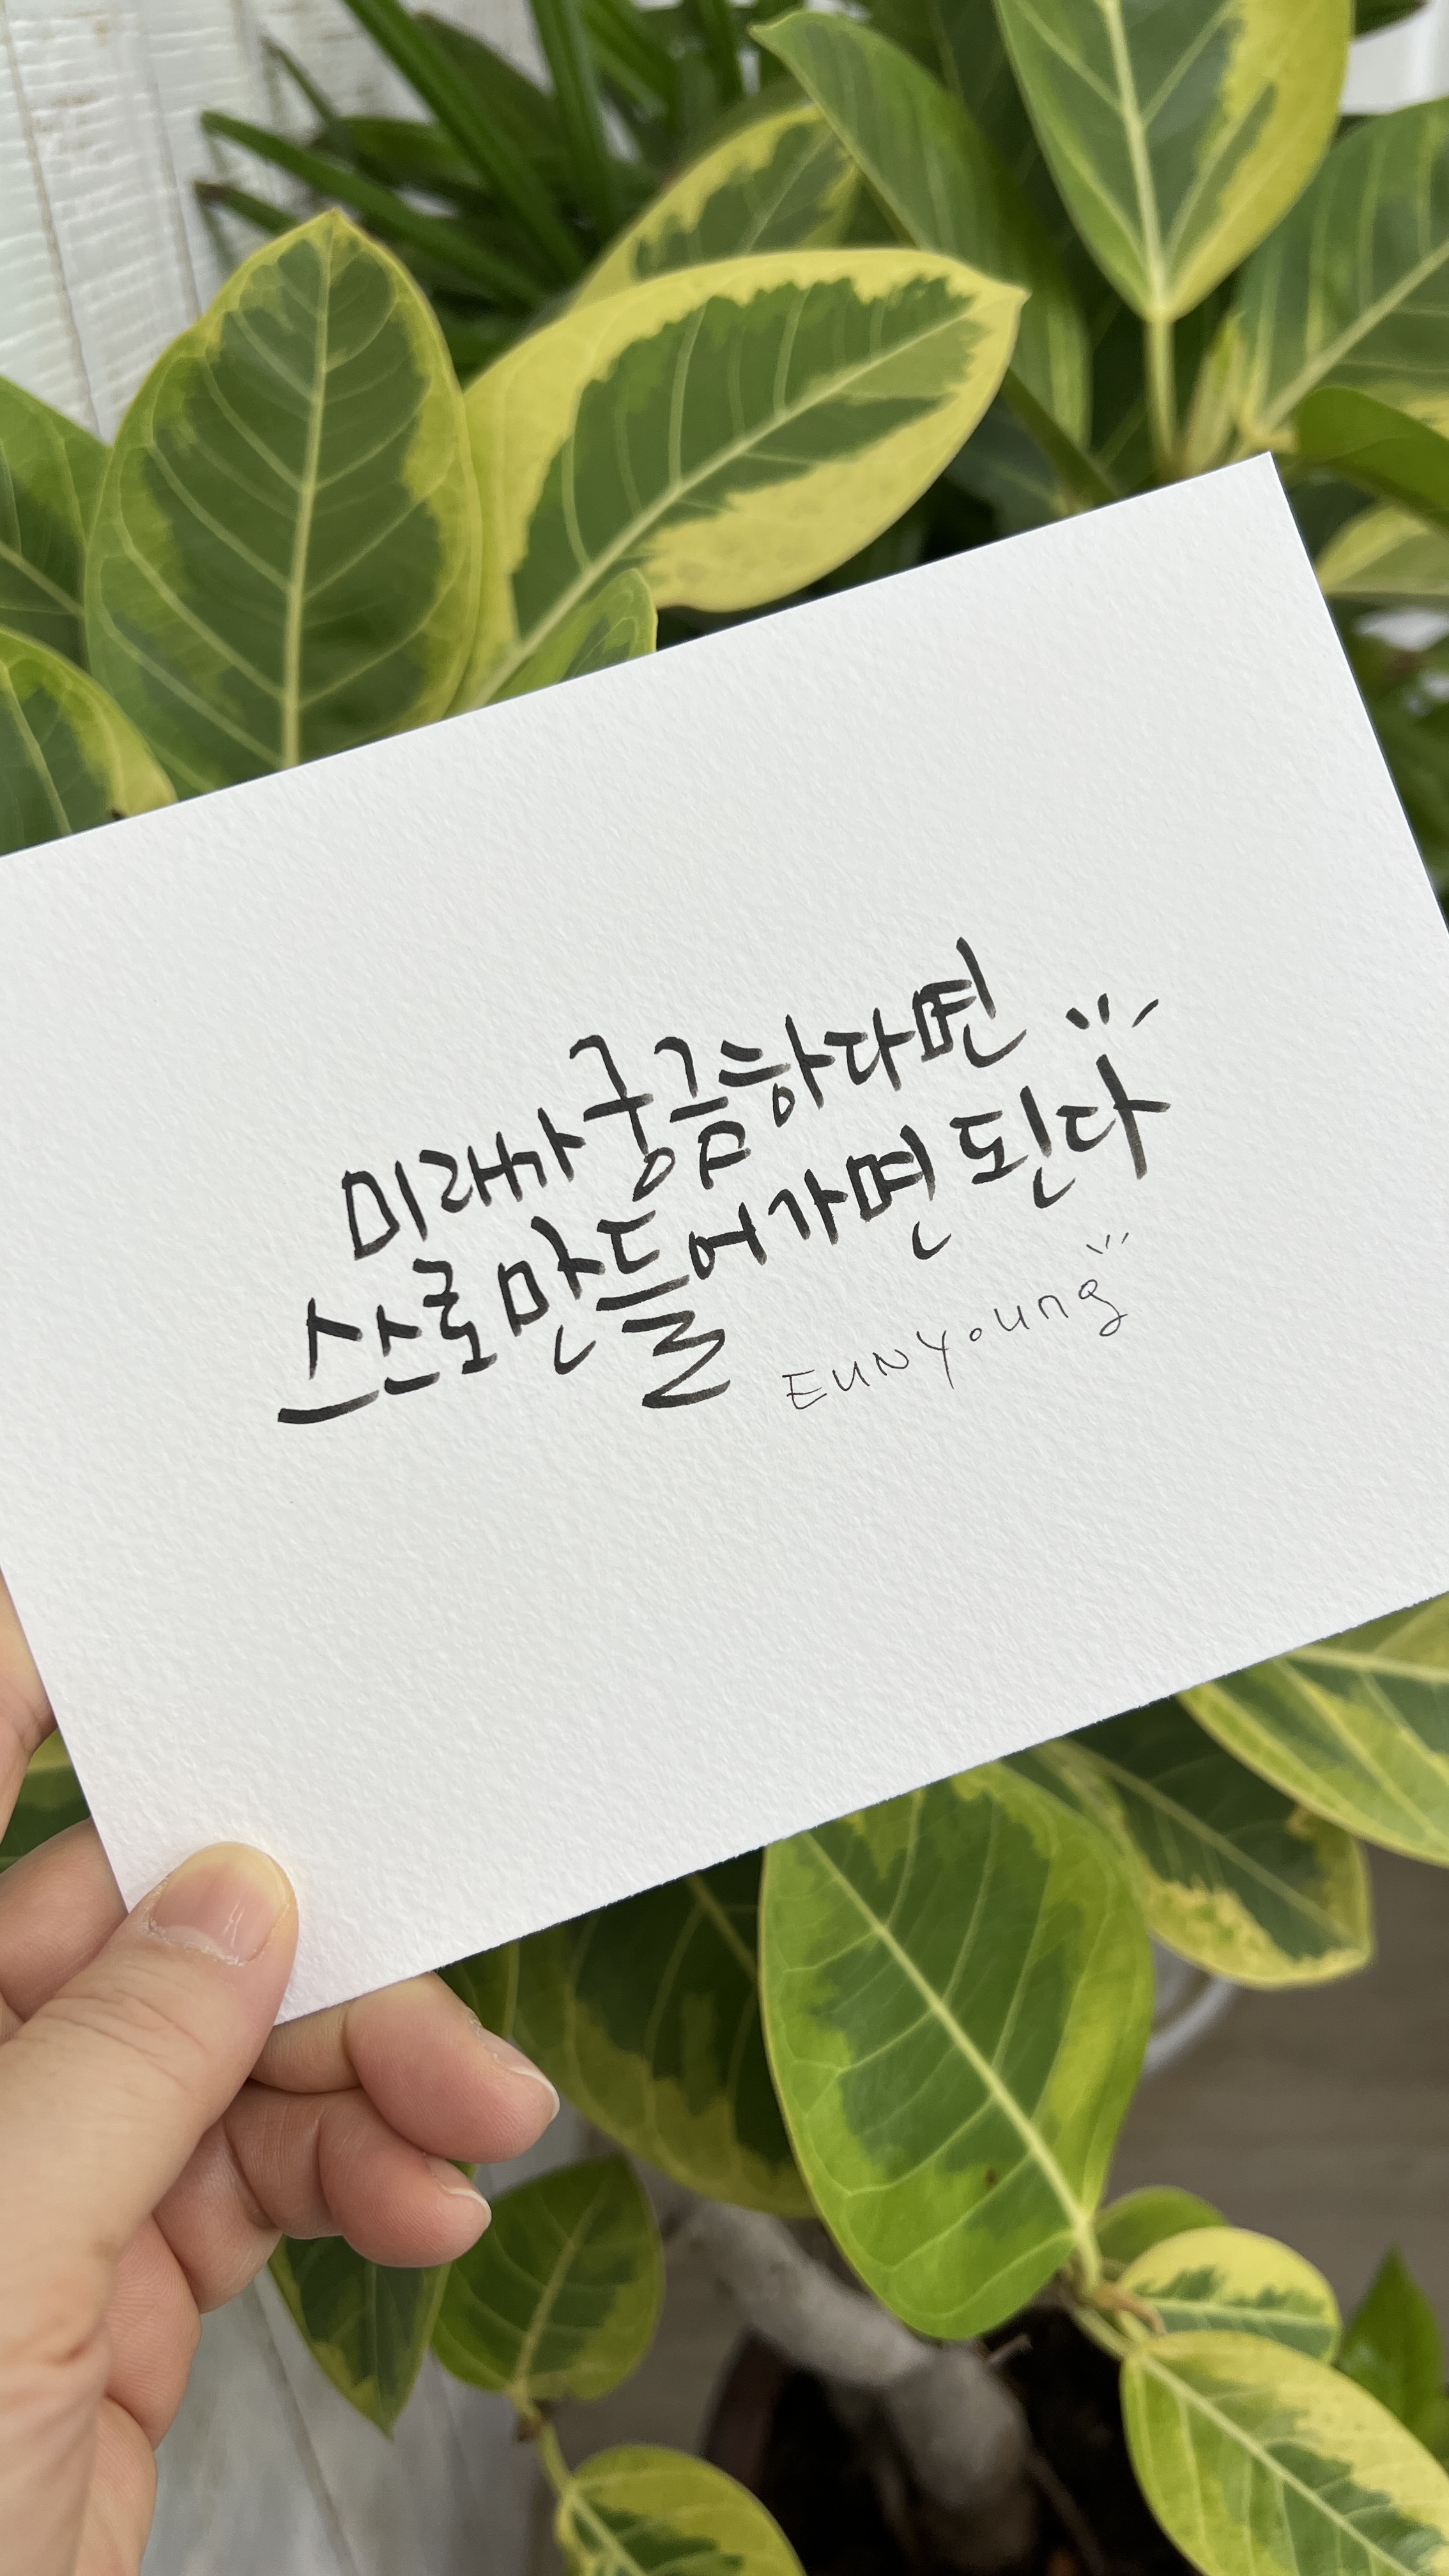 미래가 궁금하다면
스스로 만들어가면 된다
EUNYoung